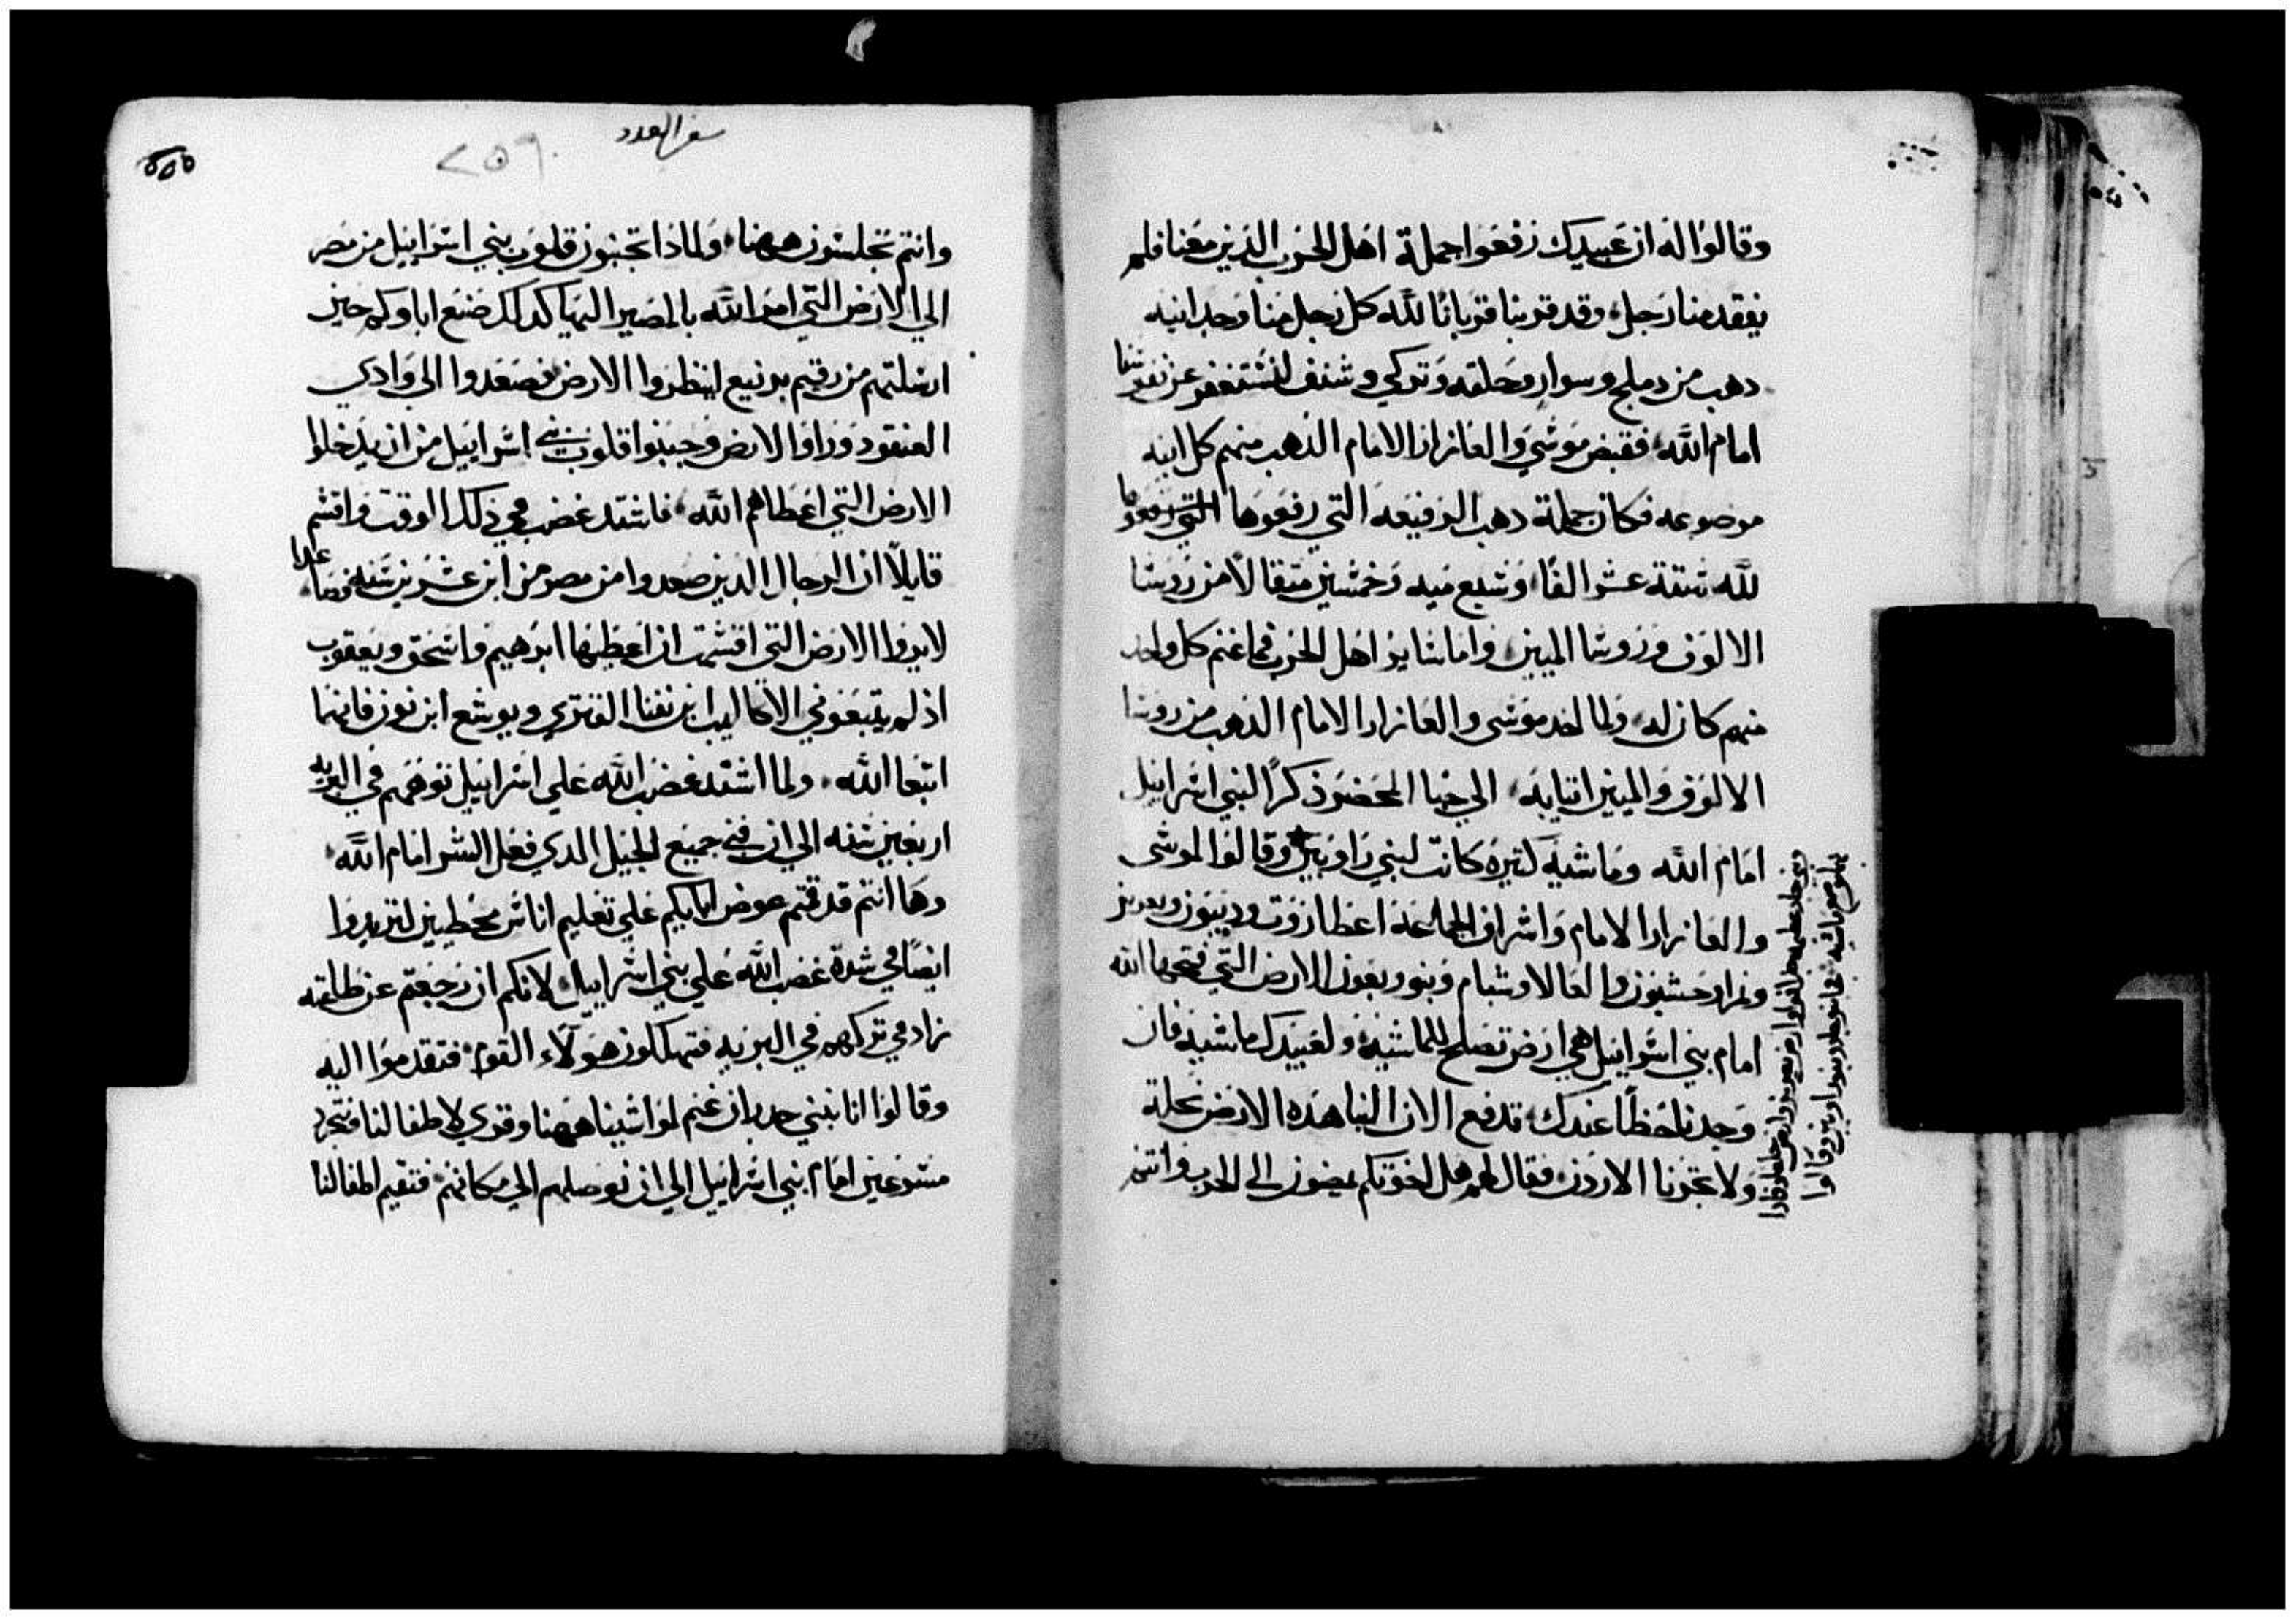 وقالوا له ان عبيدك رفعوا جملة اهل الحرب الذين معنا فلم
يفقد منا رجل وقد قربنا قربانا لله كل رجل منا وجد انيه
دهب من دملج وسوار وحلقه وتركي وشنف لنستغفر عن نفوسنا
امام الله فقبض موسي والعازار الامام الذهب منهم كل انيه
موضوعه فكان جملة دهب الرفيعه التي رفعوها التي رفعوها
لله ستة عشر الفا وسبع ميه وخمسين متقالا من روسا
الالوف وروسا الميين واما ساير اهل الحرب فما غنم كل واحد
منهم كان له ولما اخد موسي والعازار الامام الدهب من روسا
الالوف والميين اتيا به الي خبا المحضر ذكرا لبني اسراييل
امام الله وماشيه كتيره كانت لبني راوبين وقالوا لموسي
والعازار الامام واشراف الجماعة اعطاروت وديبون ويعزير
ونمرا وحشبون والعالا وشبام وبنو وبعون الارض التي فتحها الله
امام بني اسراييل هي ارض تصلح للماشيه ولعبيدك ماشيه فان
وجدنا حظا عندك فدفع الان الينا هذه الارض نحلة
ولا تجزنا الاردن فقال لهم هل اخوتكم يمضون الى الحرب وانتم
سفر العدد
٢٥٩
وانتم تجلسون ههنا ولماذا تجبنون قلوب بني اسراييل من مصر
الي الارض التي امر الله بالمصير اليها كدلك صنع اباوكم حين
ارسلتهم من رقيم برنيع لينظروا الارض فصعدوا الي وادي
العنقود وراوا الارض وجبنوا قلوب بني اسراييل من ان يدخلوا
الارض التي اعطاهم الله فاشتد غضبي في ذلك الوقت واقسم
قايلا ان الرجال الدين صعدوا من مصر من ابن عشرين سنه فصاعدا
لا يروا الارض التي اقسمت ان اعطيها ابرهيم واسحق ويعقوب
اذ لم يتبعوني الا كاليب ابن نفنا القنزي ويوشع ابن نون فانهما
اتبعا الله ولما اشتد غضب الله علي اسراييل توههم في البريه
اربعين سنه الي ان فني جميع الجيل الدي فعل الشر امام الله
وها انتم قد قمتم عوض ابايكم علي تعليم اناس مخطيين لتزيدوا
ايضا في شدة غضب الله علي بني اسراييل لانكم ان رجعتم عن طاعته
زاد في تركهم في البريه فتهلكون هولاء القوم فتقدموا اليه
وقالوا انا نبني حدران غنم لمواشينا ههنا وقري لاطفالنا فنتجرد
متسرعين امام بني اسراييل الي ان نوصلهم الي مكانهم فتقيم اطفالنا